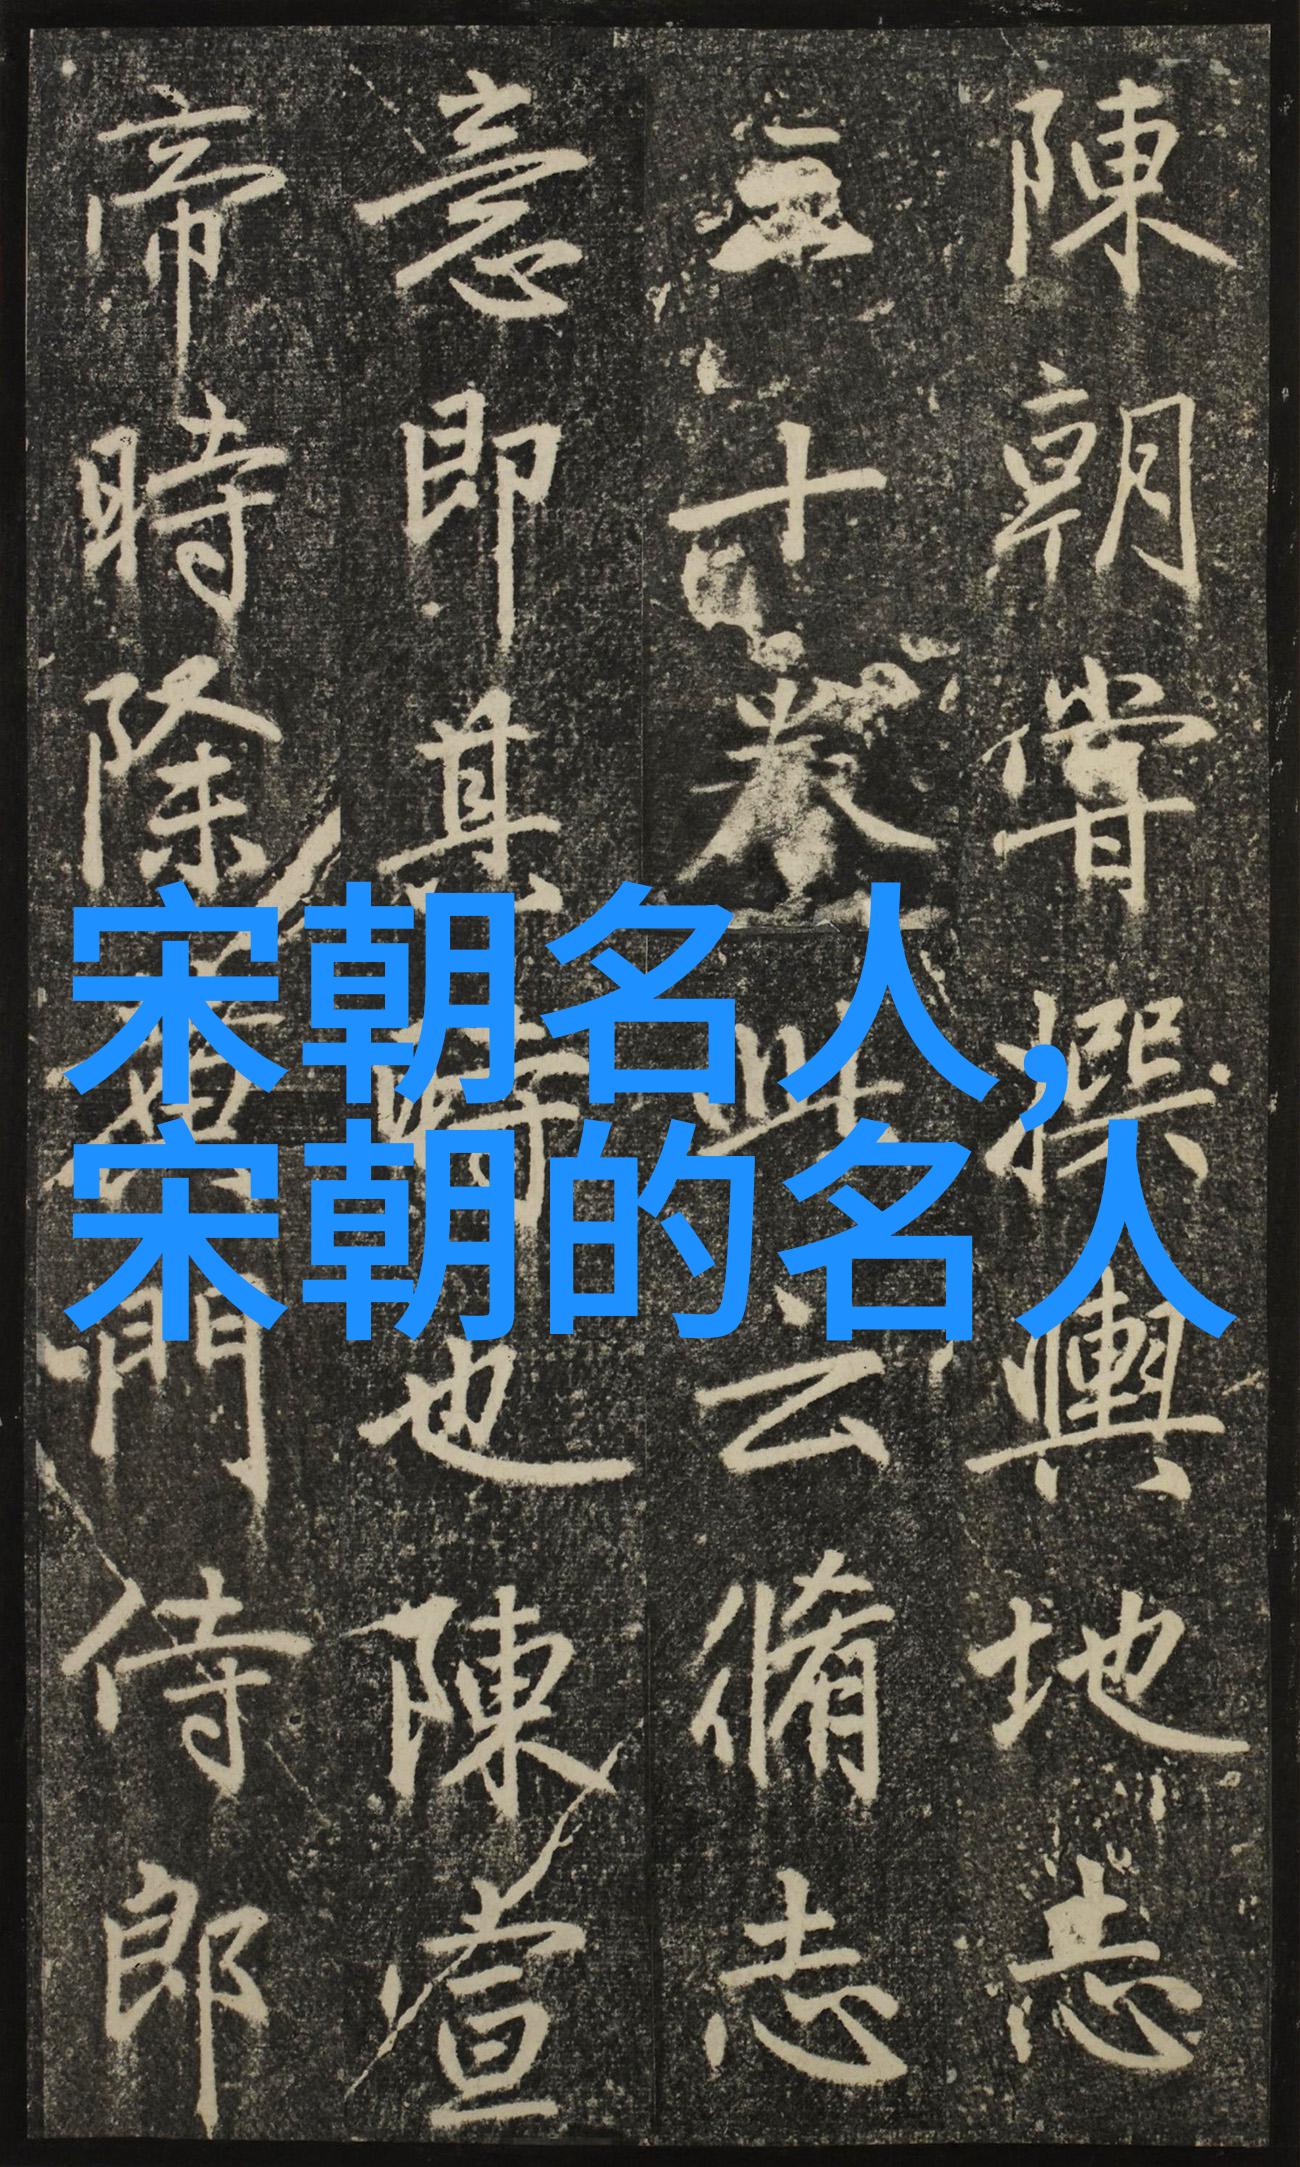 陳朝嘗撰輿地志
三十卷此云脩志
意即其時也陳宣
帝時除黃門侍郎
宋朝名人,
宋朝的名人